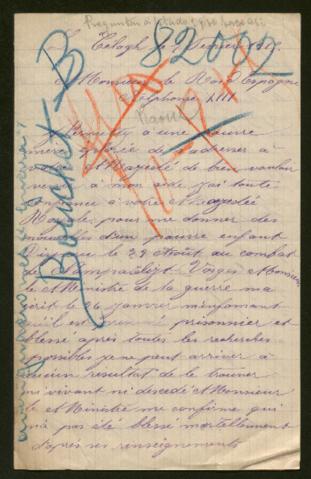 Le Telagh le 7 Février 1915
82002
Bouchet B
A Monsieur le Roi d'Espagne
Alphonse XIII
Permettez à une pauvre
mère éplorée de s'adresser a
votre Majesté de bien vouloir
venir à mon aide j'ai toute
confiance à votre Majestée
Royale pour me donner des
nouvelles d'un pauvre enfant
Disparue le 29 Août au combat
de Vosges et Monsieur
le Ministre de la guerre ma
écrit le 26 Janvier m'informant
qu'il est prisonnier et
blessé après toutes les recherches
possibles je ne peut arriver à
aucun resultat de le trouver
ni vivant ni decedé et Monsieur
le Ministre me confirme qui
n'à pas été blessé mortellement
d'apres ses renseignements